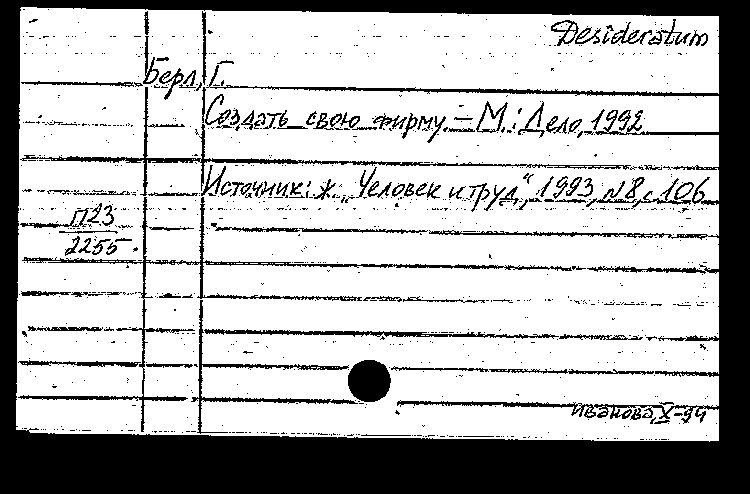 Desideratum
Берл, Г.
Создать свою фирму. – М.: Дело, 1992
Источник: ж. „Человек и труд“, 1993, № 8, с. 106
П23
2255.
Иванова, X-94